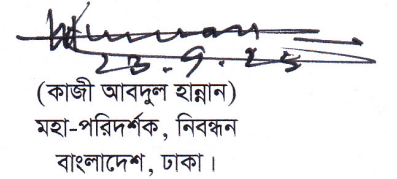 ২৩.৭.২৫
(কাজী আবদুল হান্নান)
মহা-পরিদর্শক, নিবন্ধন
বাংলাদেশ, ঢাকা।